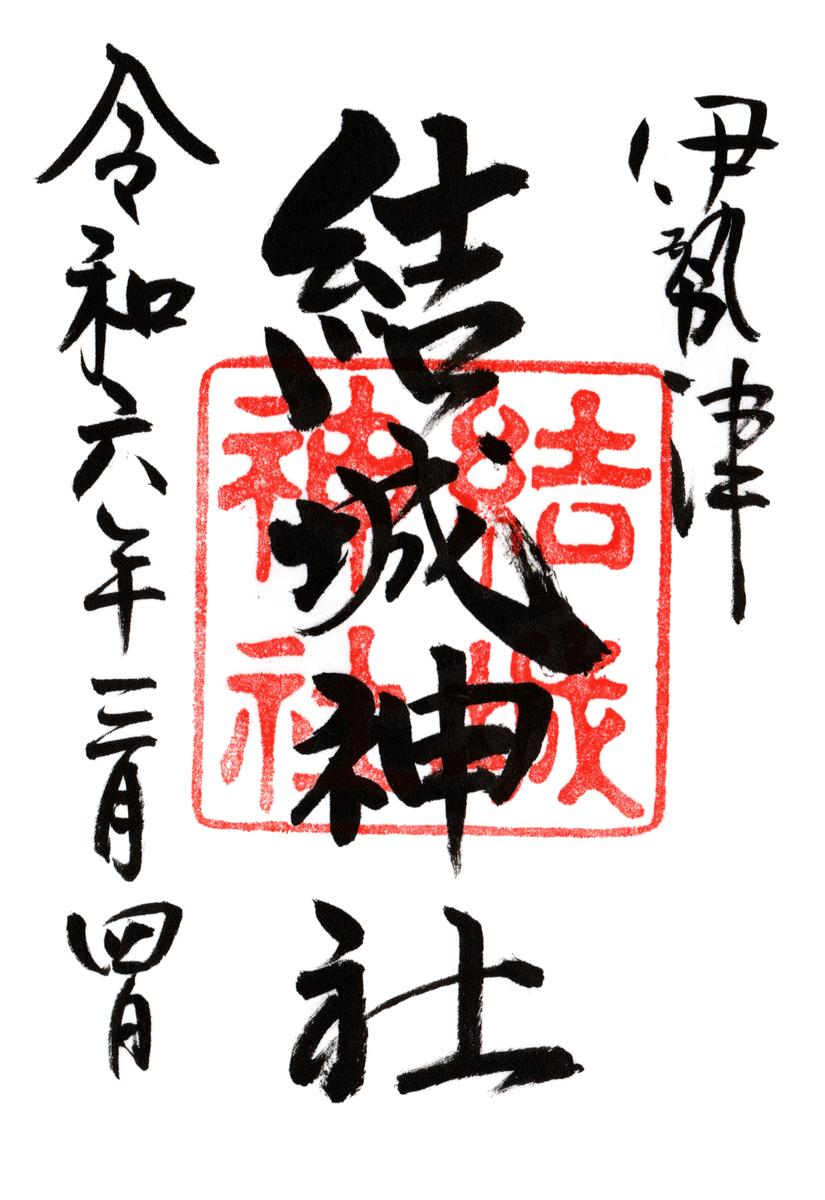 伊勢津
結城神社
結城
神社
令和六年三月四日